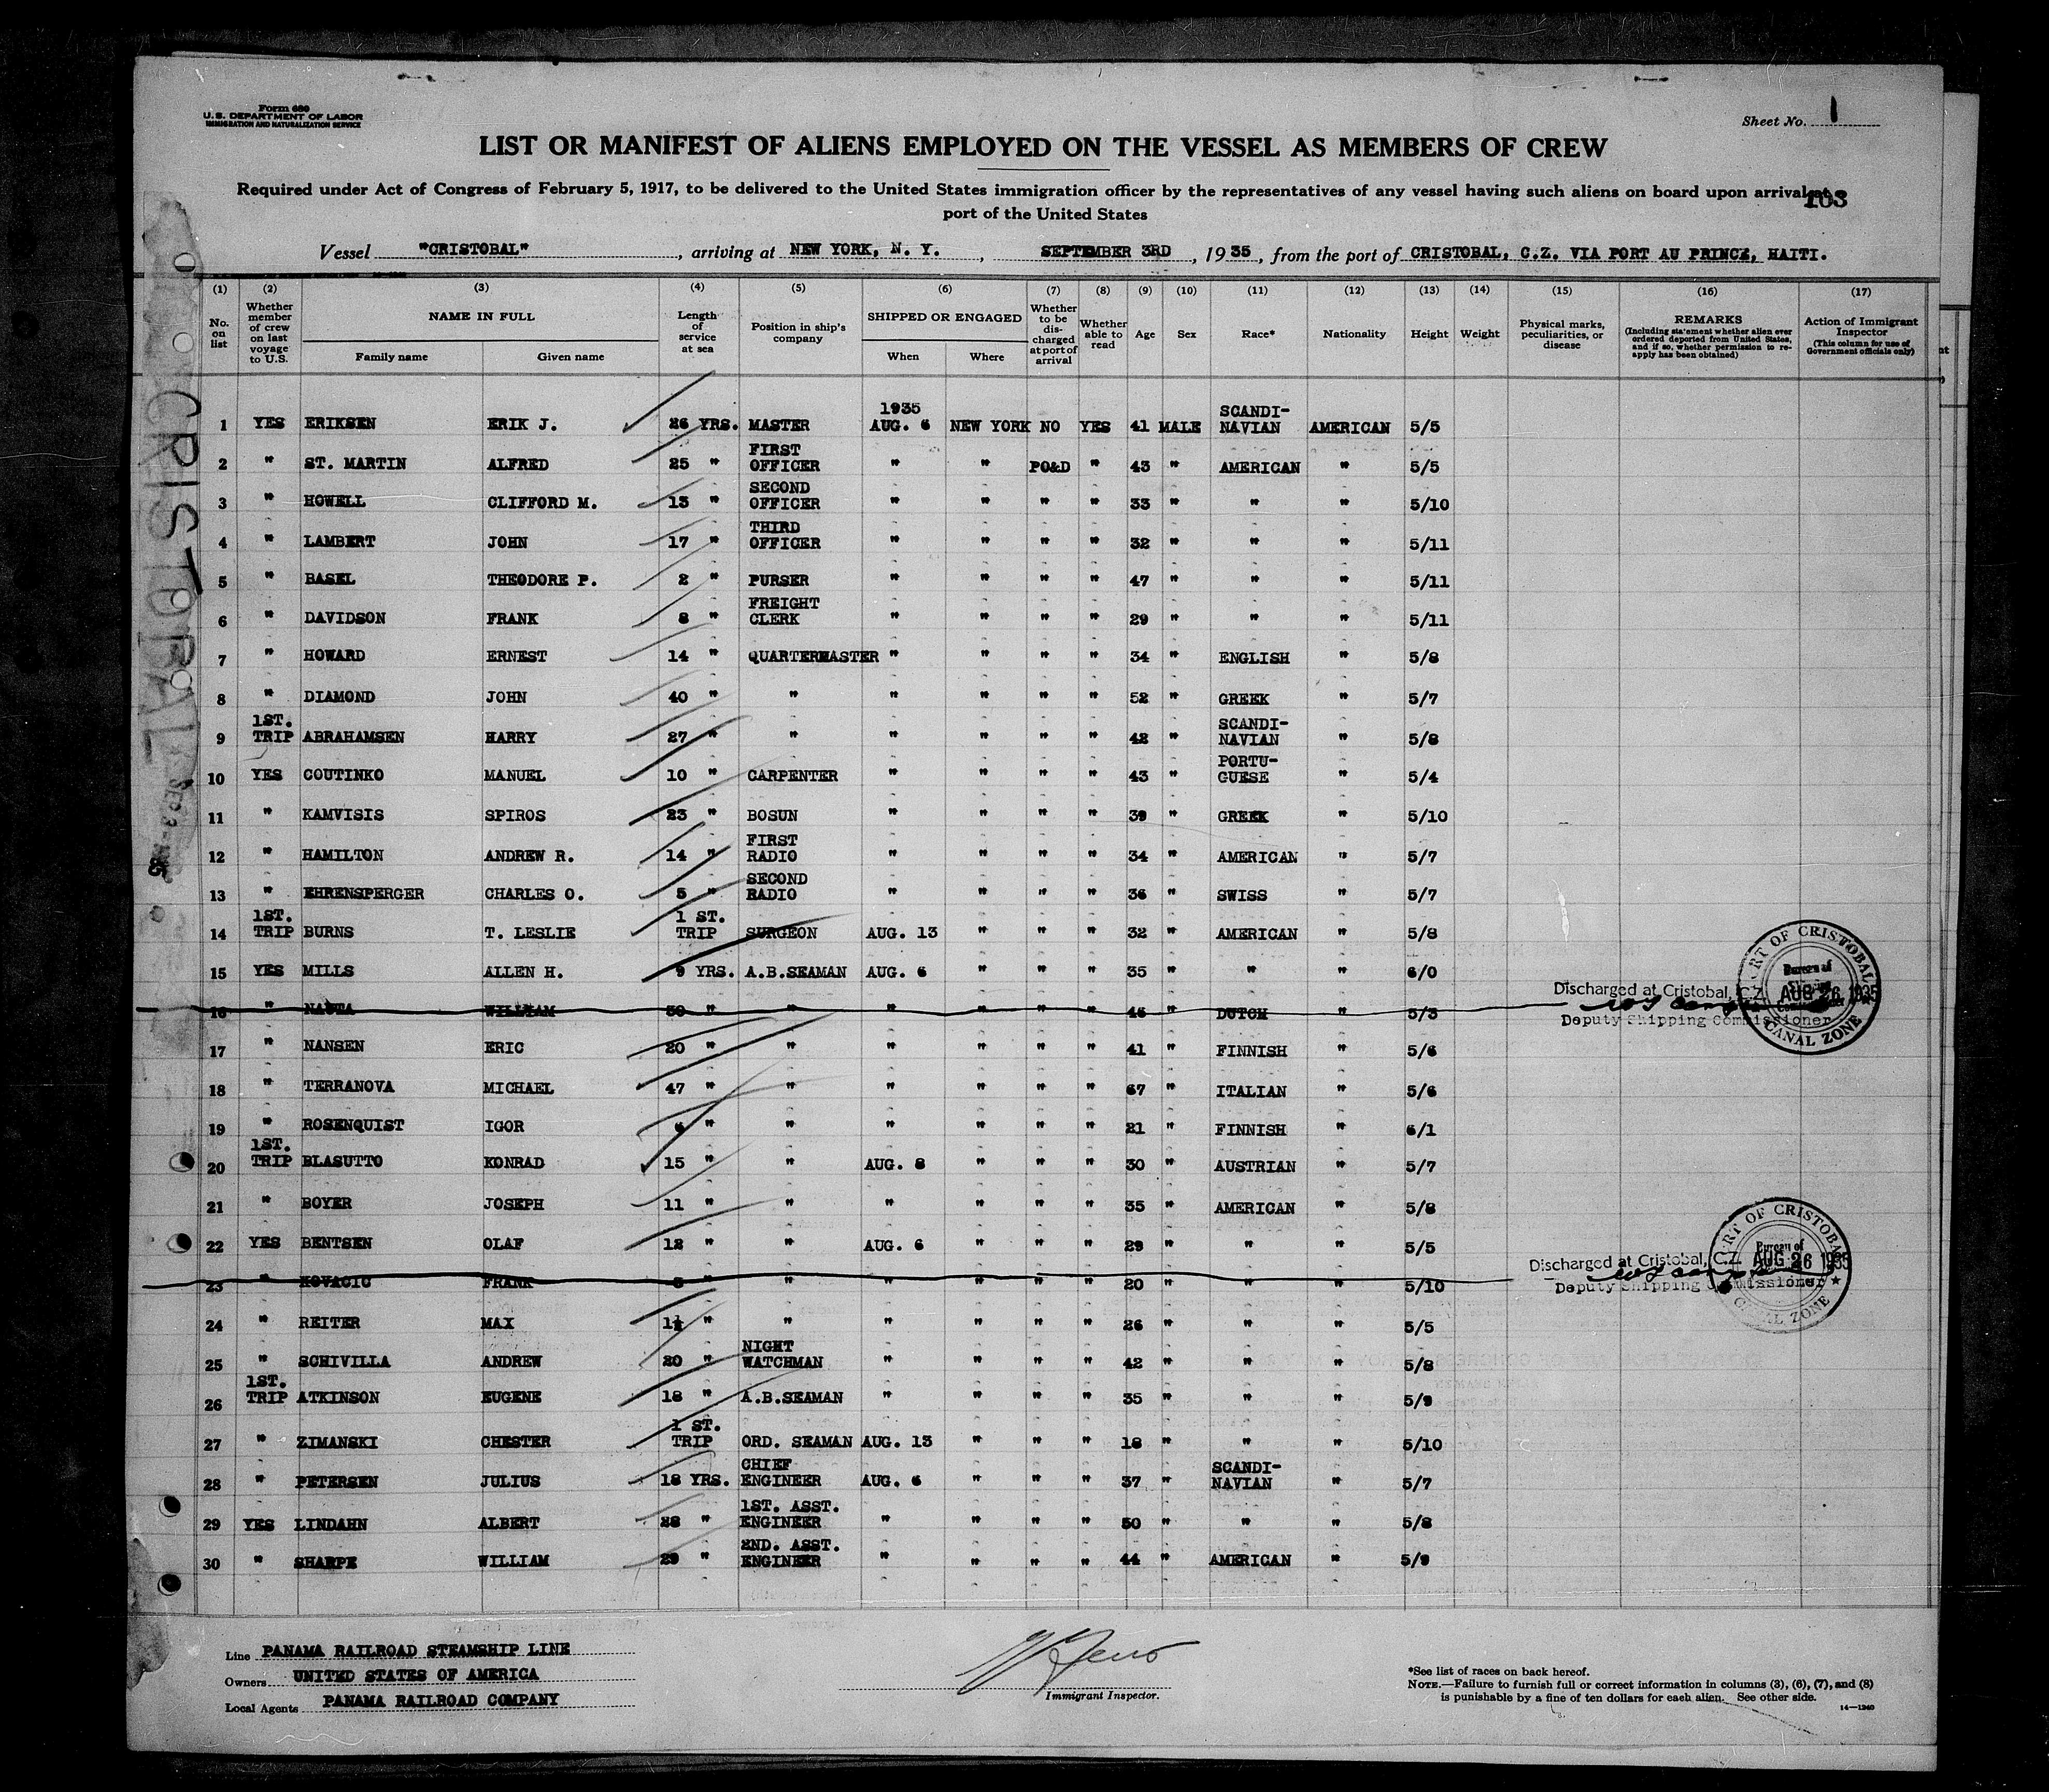 Form 680
U.S. DEPARTMENT OF LABOR
IMMIGRATION AND NATURALIZATION SERVICE
Sheet No. 1
LIST OR MANIFEST OF ALIENS EMPLOYED ON THE VESSEL AS MEMBERS OF CREW
Required under Act of Congress of February 5, 1917, to be delivered to the United States immigration officer by the representatives of any vessel having such aliens on board upon arrival at a
103
port of the United States
Vessel "CRISTOBAL", arriving at NEW YORK, N. Y., SEPTEMBER 3RD, 1935, from the port of CRISTOBAL, C.Z. VIA PORT AU PRINCE, HAITI.
(1) (2) (3) (4) (5) (6) (7) (8) (9) (10) (11) (12) (13) (14) (15) (16) (17)
No. on list Whether member of crew on last voyage to U.S. NAME IN FULL Family name Given name Length of service at sea Position in ship's company SHIPPED OR ENGAGED When Where Whether to be discharged at port of arrival Whether able to read Age Sex Race* Nationality Height Weight Physical marks, peculiarities, or disease REMARKS (Including statement whether alien ever ordered deported from United States, and if so, whether permission to re-apply has been obtained) Action of Immigrant Inspector (This column for use of Government officials only)
1 YES ERIKSEN ERIK J. 26 YRS. MASTER 1935 AUG. 6 NEW YORK NO YES 41 MALE SCANDI-NAVIAN AMERICAN 5/5
2 " ST. MARTIN ALFRED 25 " FIRST OFFICER " " PO&D " 43 " AMERICAN " 5/5
3 " HOWELL CLIFFORD M. 13 " SECOND OFFICER " " " " 33 " " " 5/10
4 " LAMBERT JOHN 17 " THIRD OFFICER " " " " 32 " " " 5/11
5 " BASEL THEODORE P. 2 " PURSER " " " " 47 " " " 5/11
6 " DAVIDSON FRANK 8 " FREIGHT CLERK " " " " 29 " " " 5/11
7 " HOWARD ERNEST 14 " QUARTERMASTER " " " " 34 " ENGLISH " 5/8
8 " DIAMOND JOHN 40 " " " " " " 52 " GREEK " 5/7
9 1ST. TRIP ABRAHAMSEN HARRY 27 " " " " " " 42 " SCANDI-NAVIAN " 5/8
10 YES COUTINKO MANUEL 10 " CARPENTER " " " " 43 " PORTU-GUESE " 5/4
11 " KAMVISIS SPIROS 23 " BOSUN " " " " 39 " GREEK " 5/10
12 " HAMILTON ANDREW R. 14 " FIRST RADIO " " " " 34 " AMERICAN " 5/7
13 " EHRENSPERGER CHARLES O. 5 " SECOND RADIO " " " " 36 " SWISS " 5/7
14 1ST. TRIP BURNS T. LESLIE 1 ST. TRIP SURGEON AUG. 13 " " " 32 " AMERICAN " 5/8
15 YES MILLS ALLEN H. 9 YRS. A.B.SEAMAN AUG. 6 " " " 35 " " " 6/0
16 " NAUTA WILLIAM 30 " " " " " " 46 " DUTCH " 5/3
Discharged at Cristobal, C.Z. AUG 26 1935
Deputy Shipping Commissioner
PORT OF CRISTOBAL Bureau of CANAL ZONE
17 " NANSEN ERIC 20 " " " " " " 41 " FINNISH " 5/6
18 " TERRANOVA MICHAEL 47 " " " " " " 67 " ITALIAN " 5/6
19 " ROSENQUIST IGOR 6 " " " " " " 21 " FINNISH " 6/1
20 1ST. TRIP BLASUTTO KONRAD 15 " " AUG. 8 " " " 30 " AUSTRIAN " 5/7
21 " BOYER JOSEPH 11 " " " " " " 35 " AMERICAN " 5/8
22 YES BENTSEN OLAF 12 " " AUG. 6 " " " 29 " " " 5/5
23 " KOVACIC FRANK " " " " " " 20 " " " 5/10
Discharged at Cristobal, C.Z. AUG 26 1935
Deputy Shipping Commissioner
PORT OF CRISTOBAL Bureau of CANAL ZONE
24 " REITER MAX 1½ " " " " " " 26 " " " 5/5
25 " SCHIVILLA ANDREW 20 " NIGHT WATCHMAN " " " " 42 " " " 5/8
26 1ST. TRIP ATKINSON EUGENE 18 " A.B.SEAMAN " " " " 35 " " " 5/9
27 " ZIMANSKI CHESTER 1 ST. TRIP ORD. SEAMAN AUG. 13 " " " 18 " " " 5/10
28 " PETERSEN JULIUS 18 YRS. CHIEF ENGINEER AUG. 6 " " " 37 " SCANDI-NAVIAN " 5/7
29 YES LINDAHN ALBERT 28 " 1ST. ASST. ENGINEER " " " " 50 " " " 5/8
30 " SHARPE WILLIAM 29 " 2ND. ASST. ENGINEER " " " " 44 " AMERICAN " 5/9
Line PANAMA RAILROAD STEAMSHIP LINE
Owners UNITED STATES OF AMERICA
Local Agents PANAMA RAILROAD COMPANY
Immigrant Inspector.
*See list of races on back hereof.
NOTE.—Failure to furnish full or correct information in columns (3), (6), (7), and (8)
is punishable by a fine of ten dollars for each alien. See other side.
14—1240
CRISTOBAL